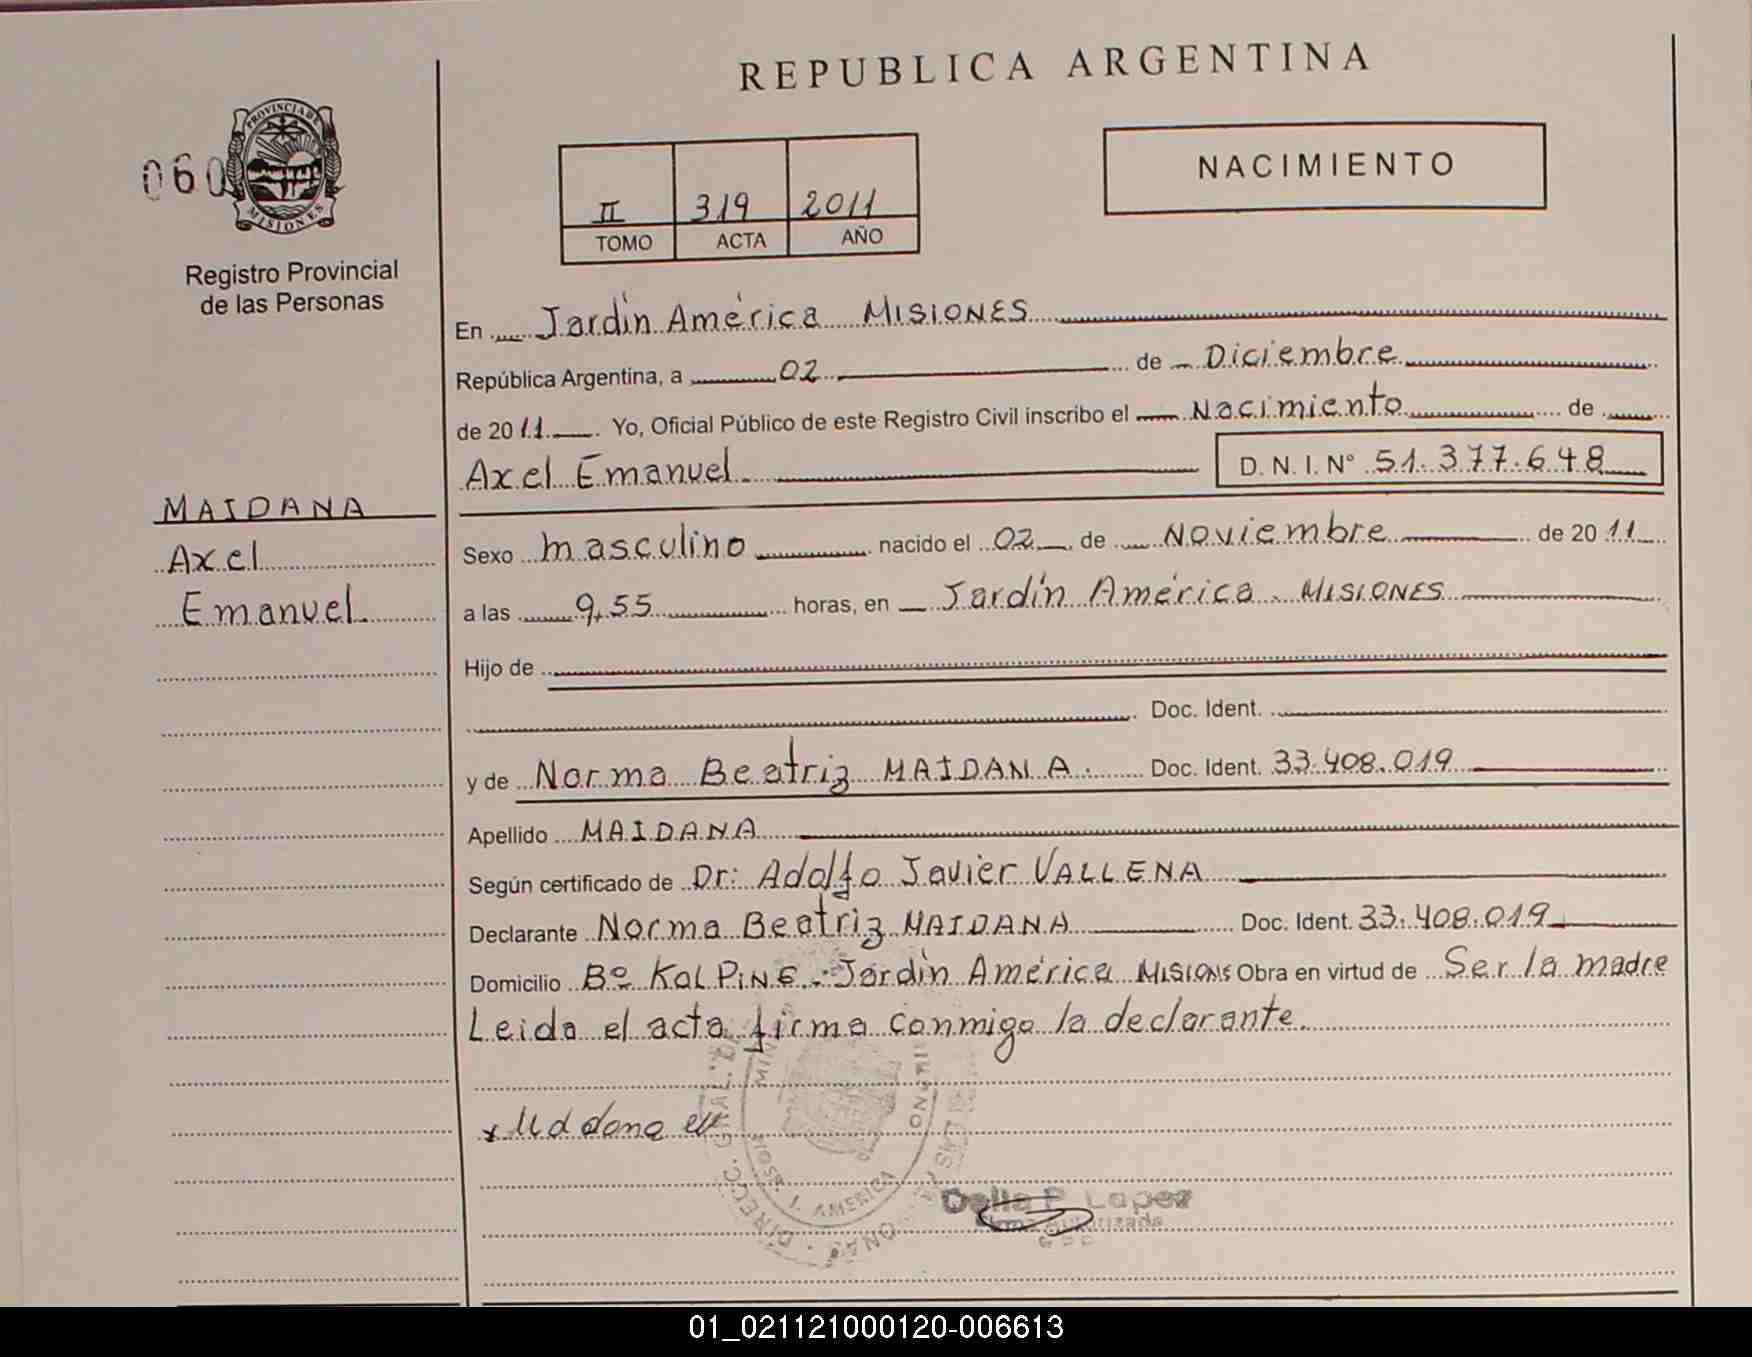 REPUBLICA ARGENTINA
060
PROVINCIA DE
MISIONES
Registro Provincial
de las Personas
II 319 2011
TOMO ACTA AÑO
NACIMIENTO
En Jardín América MISIONES
República Argentina, a 02 de Diciembre
de 2011. Yo, Oficial Público de este Registro Civil inscribo el Nacimiento de
Axel Emanuel D. N. I. N° 51.377.648
MAIDANA
Axel
Emanuel
Sexo masculino nacido el 02 de Noviembre de 2011
a las 9,55 horas, en Jardín América. MISIONES
Hijo de
Doc. Ident.
y de Norma Beatriz MAIDANA. Doc. Ident. 33.408.019
Apellido MAIDANA
Según certificado de Dr: Adolfo Javier VALLENA
Declarante Norma Beatriz MAIDANA Doc. Ident. 33.408.019
Domicilio Bº Kol Ping. Jardín América MISIONS Obra en virtud de Ser la madre
Leida el acta firma conmigo la declarante.
J. AMERICA
Delia P. Lopez
Firma Autorizada
01_021121000120-006613